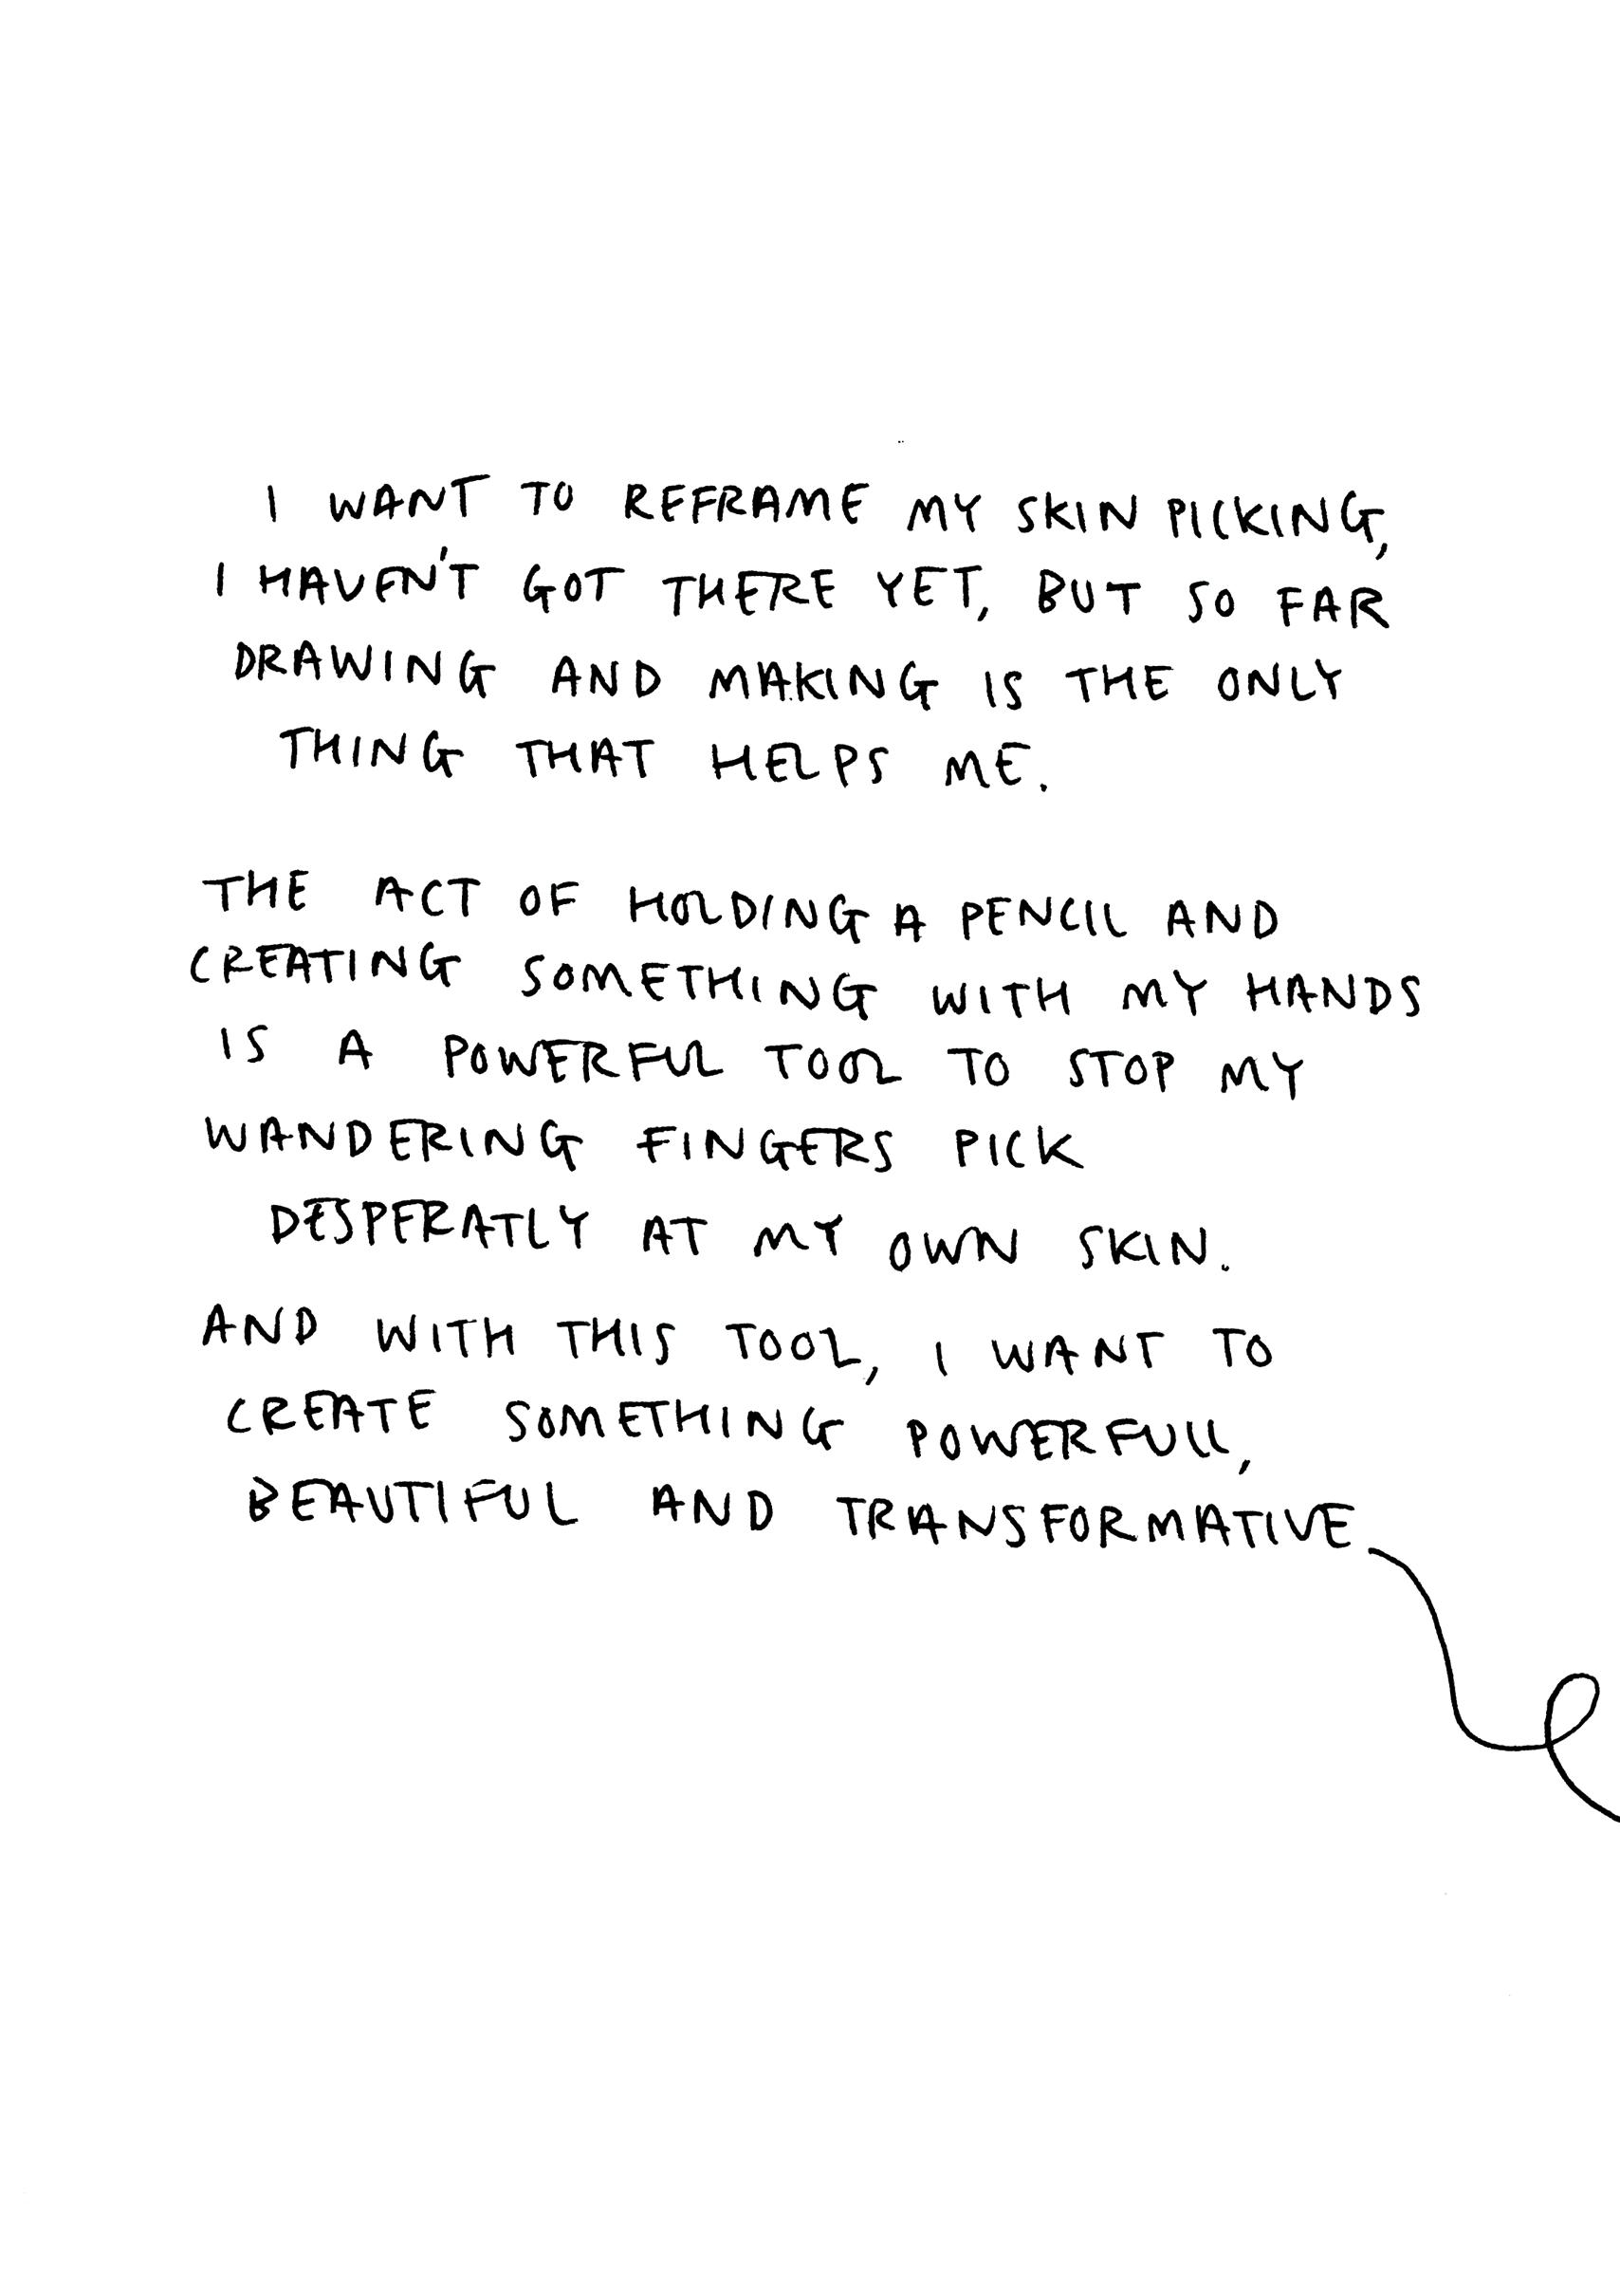 I WANT TO REFRAME MY SKIN PICKING,
I HAVEN'T GOT THERE YET, BUT SO FAR
DRAWING AND MAKING IS THE ONLY
THING THAT HELPS ME.
THE ACT OF HOLDING A PENCIL AND
CREATING SOMETHING WITH MY HANDS
IS A POWERFUL TOOL TO STOP MY
WANDERING FINGERS PICK
DESPERATLY AT MY OWN SKIN.
AND WITH THIS TOOL, I WANT TO
CREATE SOMETHING POWERFULL,
BEAUTIFUL AND TRANSFORMATIVE